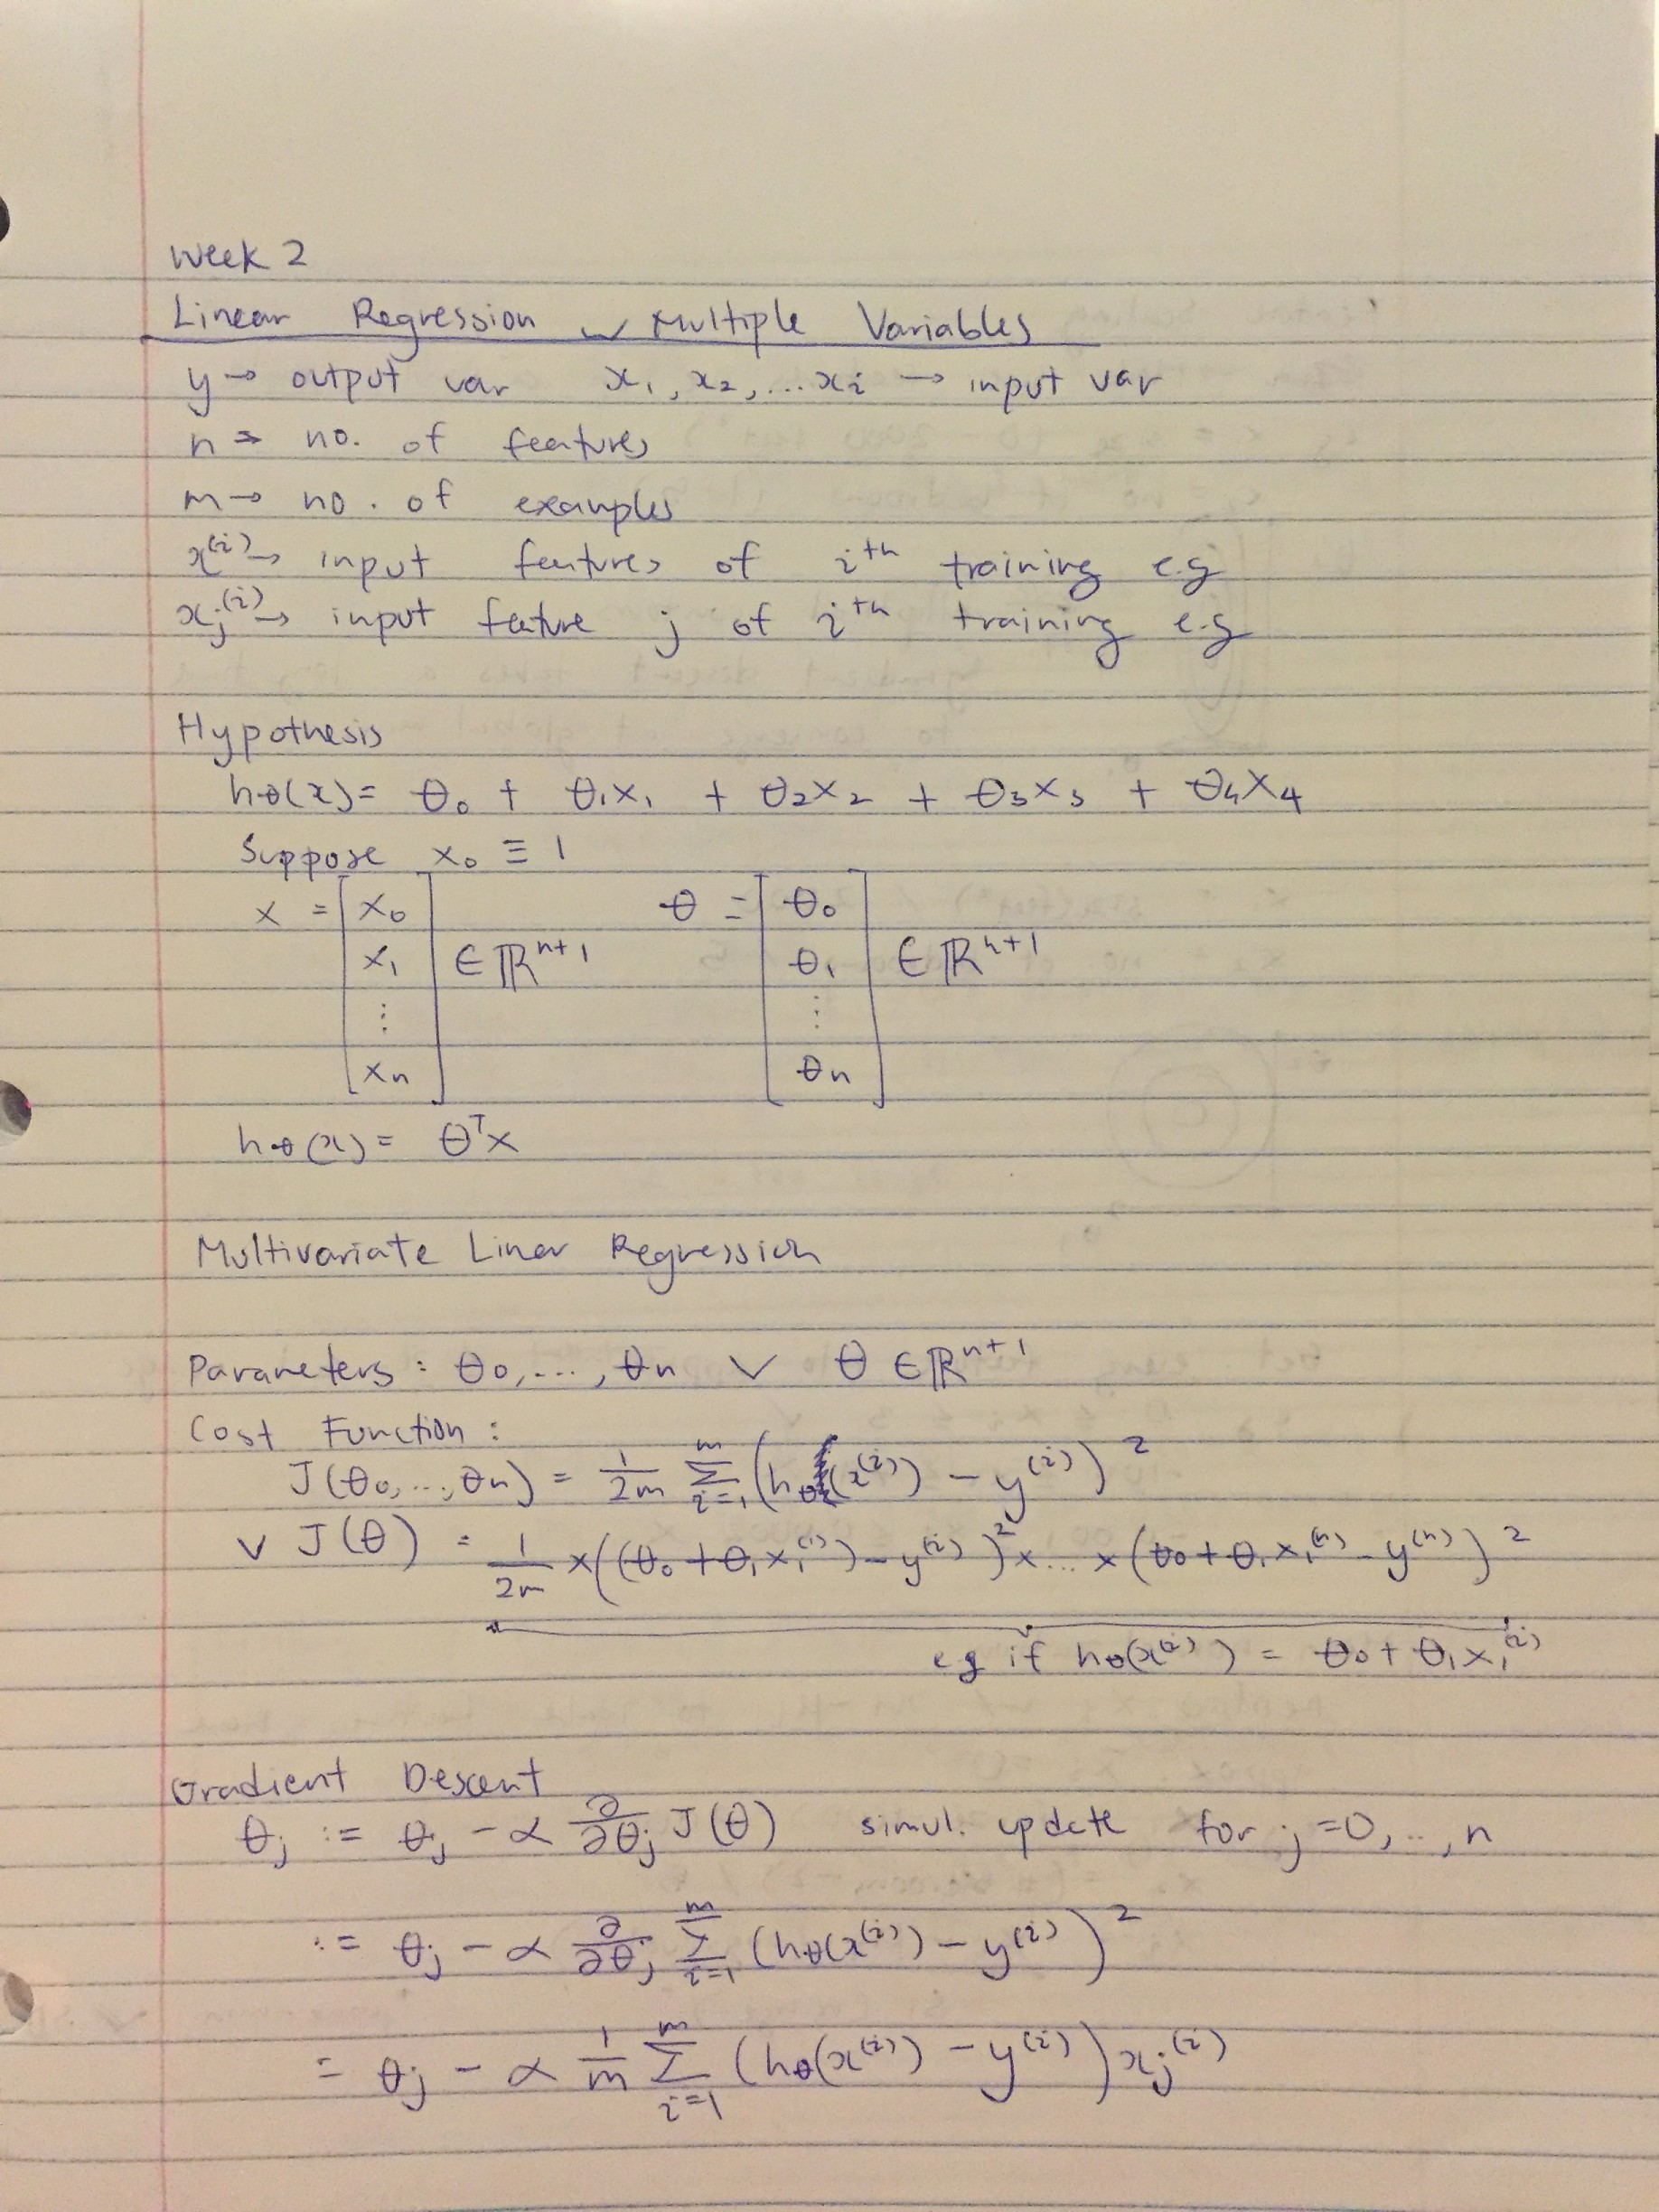 Week 2
Linear Regression w Multiple Variables
y → output var x₁, x₂, ... xᵢ → input var
n → no. of features
m → no. of examples
x⁽ⁱ⁾ → input features of iᵗʰ training e.g
xⱼ⁽ⁱ⁾ → input feature j of iᵗʰ training e.g
Hypothesis
hθ(x) = θ₀ + θ₁x₁ + θ₂x₂ + θ₃x₃ + θ₄x₄
Suppose x₀ ≡ 1
x = [x₀ θ = [θ₀
x₁ ∈ ℝⁿ⁺¹ θ₁ ∈ ℝⁿ⁺¹
⋮ ⋮
xₙ] θₙ]
hθ(x) = θᵀx
Multivariate Linear Regression
Parameters : θ₀, ..., θₙ ∨ θ ∈ ℝⁿ⁺¹
Cost Function :
J(θ₀, ..., θₙ) = 1/2m Σᵢ₌₁ᵐ (hθ(x⁽ⁱ⁾) − y⁽ⁱ⁾)²
∨ J(θ) = 1/2m × ((θ₀ + θ₁x₁⁽¹⁾) − y⁽ⁱ⁾)² × ... × (θ₀ + θ₁x₁⁽ⁿ⁾ − y⁽ⁿ⁾)²
eg if hθ(x⁽ⁱ⁾) = θ₀ + θ₁x₁⁽ⁱ⁾
Gradient Descent
θⱼ := θⱼ − α ∂/∂θⱼ J(θ) simul. update for j = 0, .., n
:= θⱼ − α ∂/∂θⱼ Σᵢ₌₁ᵐ (hθ(x⁽ⁱ⁾) − y⁽ⁱ⁾)²
= θⱼ − α 1/m Σᵢ₌₁ᵐ (hθ(x⁽ⁱ⁾) − y⁽ⁱ⁾) xⱼ⁽ⁱ⁾